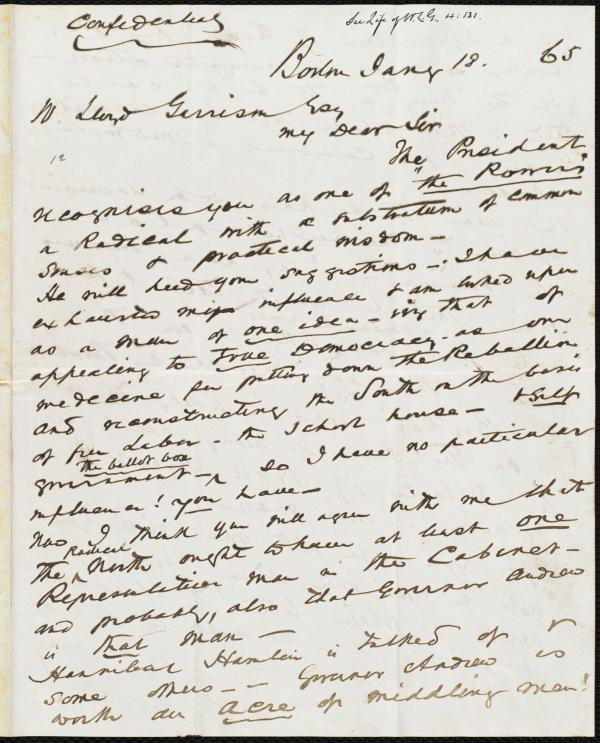 Confidential
See Life of W.L.G. 4:131.
Boston Jany 18. 65
W. Lloyd Garrison Esq
my Dear Sir
The President
recognises you as one of "the Powers"
a Radical with a substratum of common
sense & practical wisdom—
He will heed your suggestions—; I have
exhausted my influence & am looked upon
as a man of one idea— viz that of
appealing to True Democracy as our
medicine for putting down the Rebellion
and reconstructing the South on the basis
of free Labor— the School house— & Self
government— ^ the ballot box so I have no particular
influence! you have—
Now I think you will agree with me that
the ^ Radical North ought to have at least one
Representative man in the Cabinet—
and probably, also that Governor Andrew
is that man—
Hannibal Hamlin is talked of &
some others—— Governor Andrew is
worth an acre of middling men!